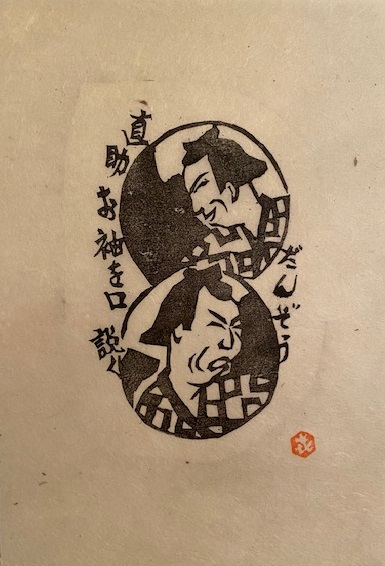 直助お袖を口説く
だんぞう